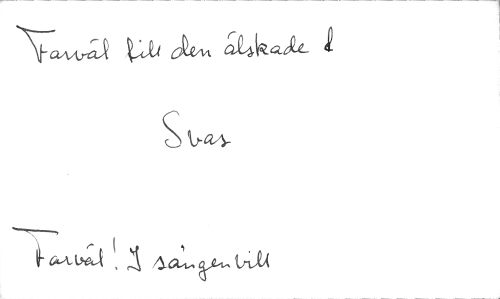 Farväl till den älskade
Svar
Farväl! I sången vill